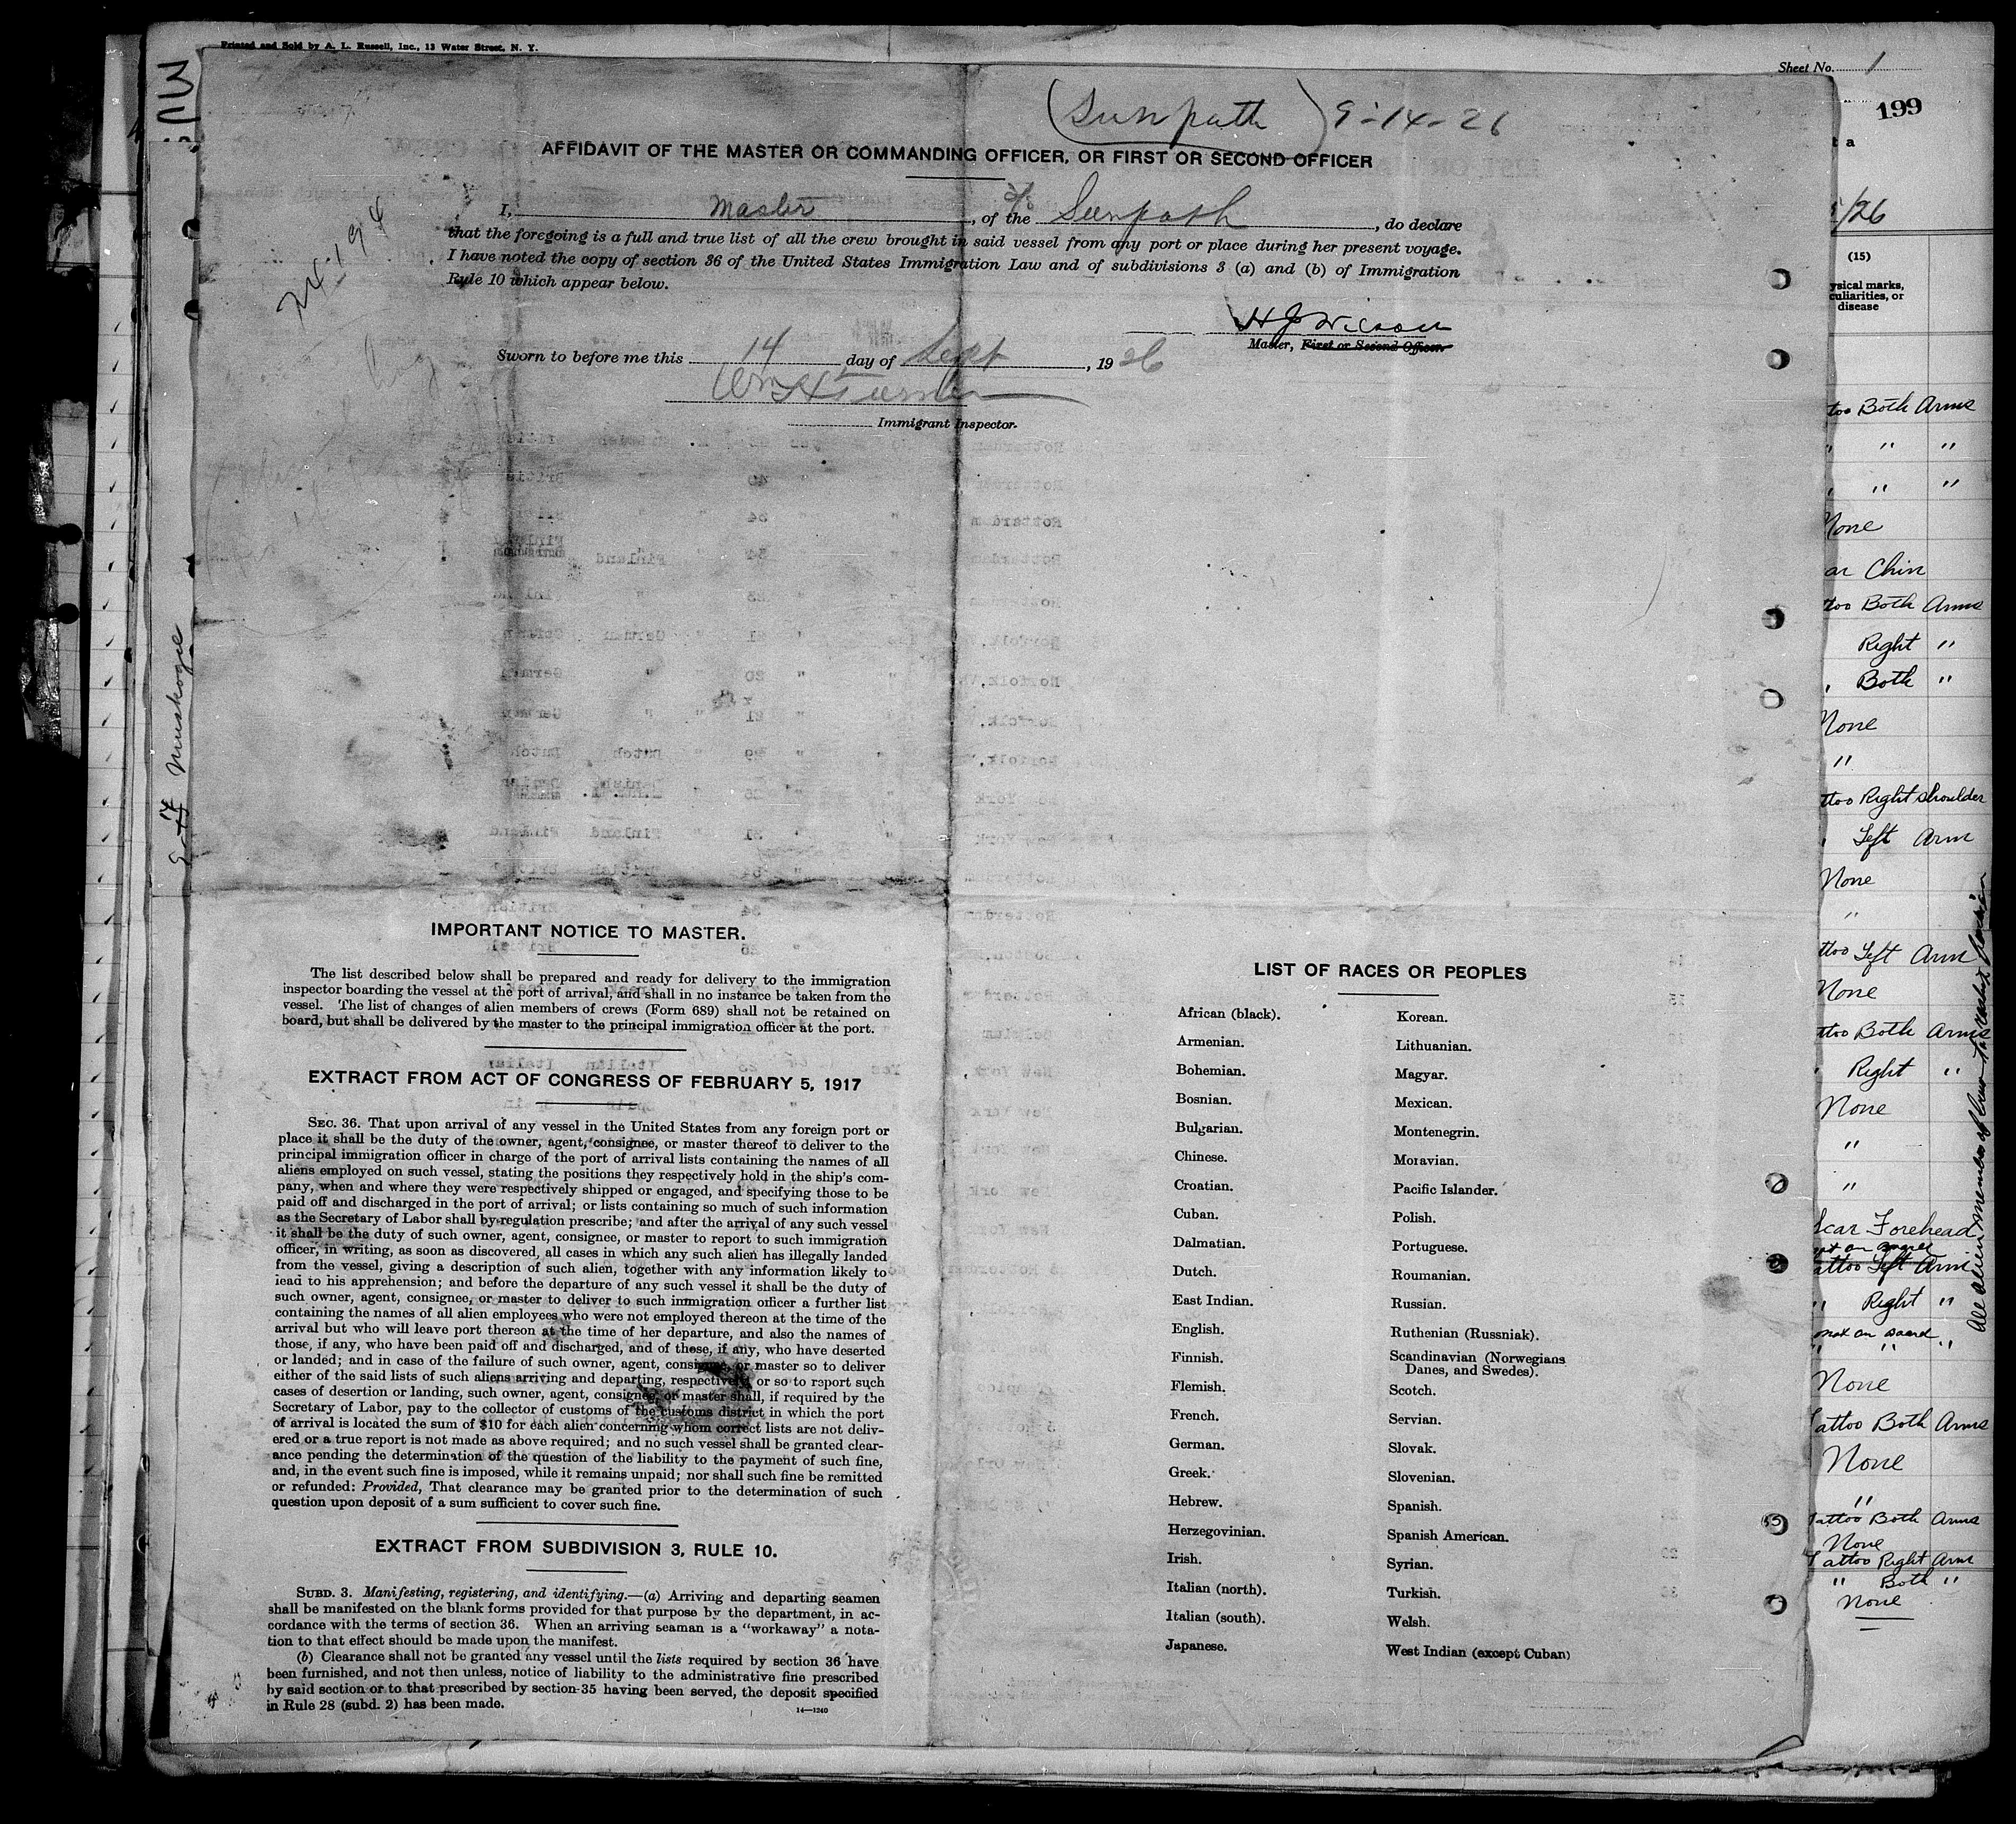 Printed and Sold by A. L. Russell, Inc., 13 Water Street, N. Y.
Sheet No. 1
199
(Sunpath) 9-14-26
AFFIDAVIT OF THE MASTER OR COMMANDING OFFICER, OR FIRST OR SECOND OFFICER
I, Master, of the S/S Sunpath, do declare
that the foregoing is a full and true list of all the crew brought in said vessel from any port or place during her present voyage.
I have noted the copy of section 36 of the United States Immigration Law and of subdivisions 3 (a) and (b) of Immigration
Rule 10 which appear below.
H J Wilson
Master, First or Second Officer
Sworn to before me this 14 day of Sept, 1926
Immigrant Inspector.
IMPORTANT NOTICE TO MASTER.
The list described below shall be prepared and ready for delivery to the immigration
inspector boarding the vessel at the port of arrival, and shall in no instance be taken from the
vessel. The list of changes of alien members of crews (Form 689) shall not be retained on
board, but shall be delivered by the master to the principal immigration officer at the port.
EXTRACT FROM ACT OF CONGRESS OF FEBRUARY 5, 1917
SEC. 36. That upon arrival of any vessel in the United States from any foreign port or
place it shall be the duty of the owner, agent, consignee, or master thereof to deliver to the
principal immigration officer in charge of the port of arrival lists containing the names of all
aliens employed on such vessel, stating the positions they respectively hold in the ship's com-
pany, when and where they were respectively shipped or engaged, and specifying those to be
paid off and discharged in the port of arrival; or lists containing so much of such information
as the Secretary of Labor shall by regulation prescribe; and after the arrival of any such vessel
it shall be the duty of such owner, agent, consignee, or master to report to such immigration
officer, in writing, as soon as discovered, all cases in which any such alien has illegally landed
from the vessel, giving a description of such alien, together with any information likely to
lead to his apprehension; and before the departure of any such vessel it shall be the duty of
such owner, agent, consignee, or master to deliver to such immigration officer a further list
containing the names of all alien employees who were not employed thereon at the time of the
arrival but who will leave port thereon at the time of her departure, and also the names of
those, if any, who have been paid off and discharged, and of those, if any, who have deserted
or landed; and in case of the failure of such owner, agent, consignee, or master so to deliver
either of the said lists of such aliens arriving and departing, respectively, or so to report such
cases of desertion or landing, such owner, agent, consignee, or master shall, if required by the
Secretary of Labor, pay to the collector of customs of the customs district in which the port
of arrival is located the sum of $10 for each alien concerning whom correct lists are not deliv-
ered or a true report is not made as above required; and no such vessel shall be granted clear-
ance pending the determination of the question of the liability to the payment of such fine,
and, in the event such fine is imposed, while it remains unpaid; nor shall such fine be remitted
or refunded: Provided, That clearance may be granted prior to the determination of such
question upon deposit of a sum sufficient to cover such fine.
EXTRACT FROM SUBDIVISION 3, RULE 10.
SUBD. 3. Manifesting, registering, and identifying.—(a) Arriving and departing seamen
shall be manifested on the blank forms provided for that purpose by the department, in ac-
cordance with the terms of section 36. When an arriving seaman is a "workaway" a nota-
tion to that effect should be made upon the manifest.
(b) Clearance shall not be granted any vessel until the lists required by section 36 have
been furnished, and not then unless, notice of liability to the administrative fine prescribed
by said section or to that prescribed by section 35 having been served, the deposit specified
in Rule 28 (subd. 2) has been made.
14—1240
LIST OF RACES OR PEOPLES
African (black).
Armenian.
Bohemian.
Bosnian.
Bulgarian.
Chinese.
Croatian.
Cuban.
Dalmatian.
Dutch.
East Indian.
English.
Finnish.
Flemish.
French.
German.
Greek.
Hebrew.
Herzegovinian.
Irish.
Italian (north).
Italian (south).
Japanese.
Korean.
Lithuanian.
Magyar.
Mexican.
Montenegrin.
Moravian.
Pacific Islander.
Polish.
Portuguese.
Roumanian.
Russian.
Ruthenian (Russniak).
Scandinavian (Norwegians
Danes, and Swedes).
Scotch.
Servian.
Slovak.
Slovenian.
Spanish.
Spanish American.
Syrian.
Turkish.
Welsh.
West Indian (except Cuban)
Muskogee
/26
(15)
ysical marks,
culiarities, or
disease
too Both Arms
" " "
" " "
None
ar Chin
too Both Arms
Right "
" Both "
None
"
ttoo Right shoulder
" Left Arm
None
"
ttoo Left Arm
None
ttoo Both Arms
" Right "
None
"
"
Scar Forehead
attoo Left Arm
" Right "
not on board
" " "
None
Tattoo Both Arms
None
"
Tattoo Both Arms
None
Tattoo Right Arm
" Both "
None